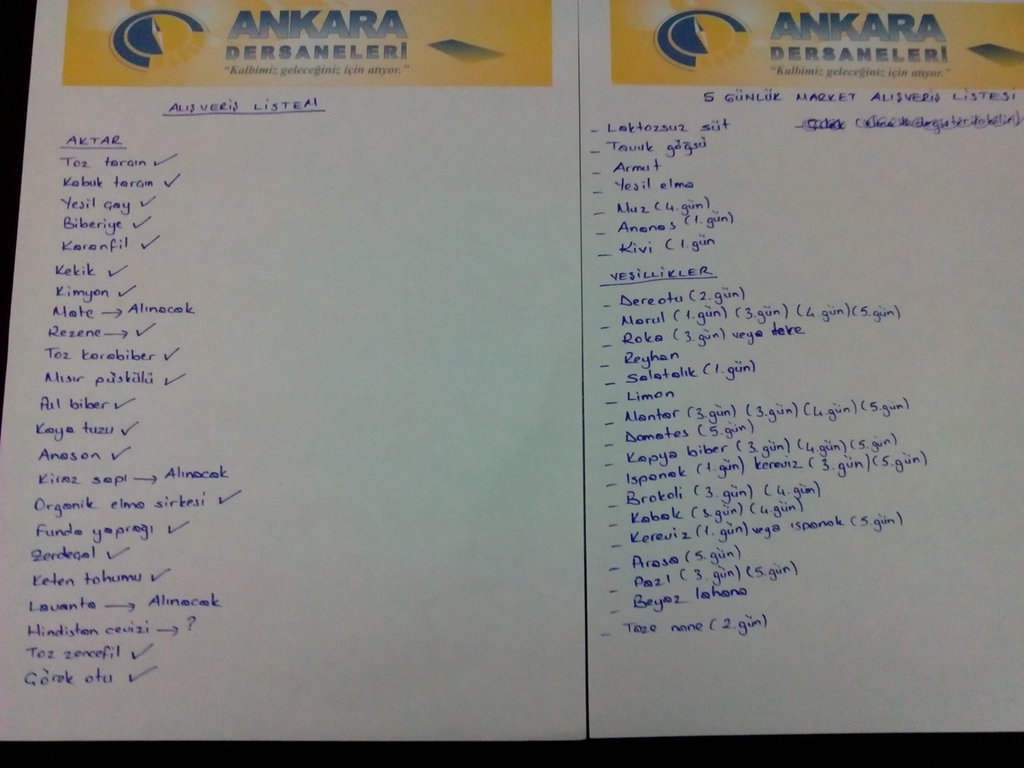 ANKARA
DERSANELERİ
"Kalbimiz geleceğiniz için atıyor."
ALIŞVERİŞ LİSTEM
AKTAR
Toz tarçın ✓
Kabuk tarçın ✓
Yeşil çay ✓
Biberiye ✓
Karanfil ✓
Kekik ✓
Kimyon ✓
Mate → Alınacak
Rezene → ✓
Toz karabiber ✓
Mısır püskülü ✓
Pul biber ✓
Kaya tuzu ✓
Anason ✓
Kiraz sapı → Alınacak
Organik elma sirkesi ✓
Funda yaprağı ✓
Zerdeçal ✓
Keten tohumu ✓
Lavanta → Alınacak
Hindistan cevizi → ?
Toz zencefil ✓
Çörek otu ✓
ANKARA
DERSANELERİ
"Kalbimiz geleceğiniz için atıyor."
5 GÜNLÜK MARKET ALIŞVERİŞ LİSTESİ
- Laktozsuz süt
- Tavuk göğsü
- Armut
- Yeşil elma
- Muz (4.gün)
- Ananas (1.gün)
- Kivi (1.gün
YEŞİLLİKLER
- Dereotu (2.gün)
- Marul (1.gün) (3.gün) (4.gün) (5.gün)
- Roka (3.gün) veya tere
- Reyhan
- Salatalık (1.gün)
- Limon
- Mantar (3.gün) (3.gün) (4.gün) (5.gün)
- Domates (5.gün)
- Kapya biber (3.gün) (4.gün) (5.gün)
- Ispanak (1.gün) kereviz (3.gün) (5.gün)
- Brokoli (3.gün) (4.gün)
- Kabak (3.gün) (4.gün)
- Kereviz (1.gün) veya ıspanak (5.gün)
- Pırasa (5.gün)
- Pazı (3.gün) (5.gün)
- Beyaz lahana
- Taze nane (2.gün)